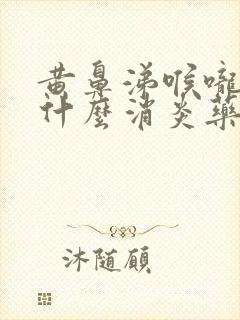 黄鼻涕喉嚨
什麼消炎藥
沐随顾